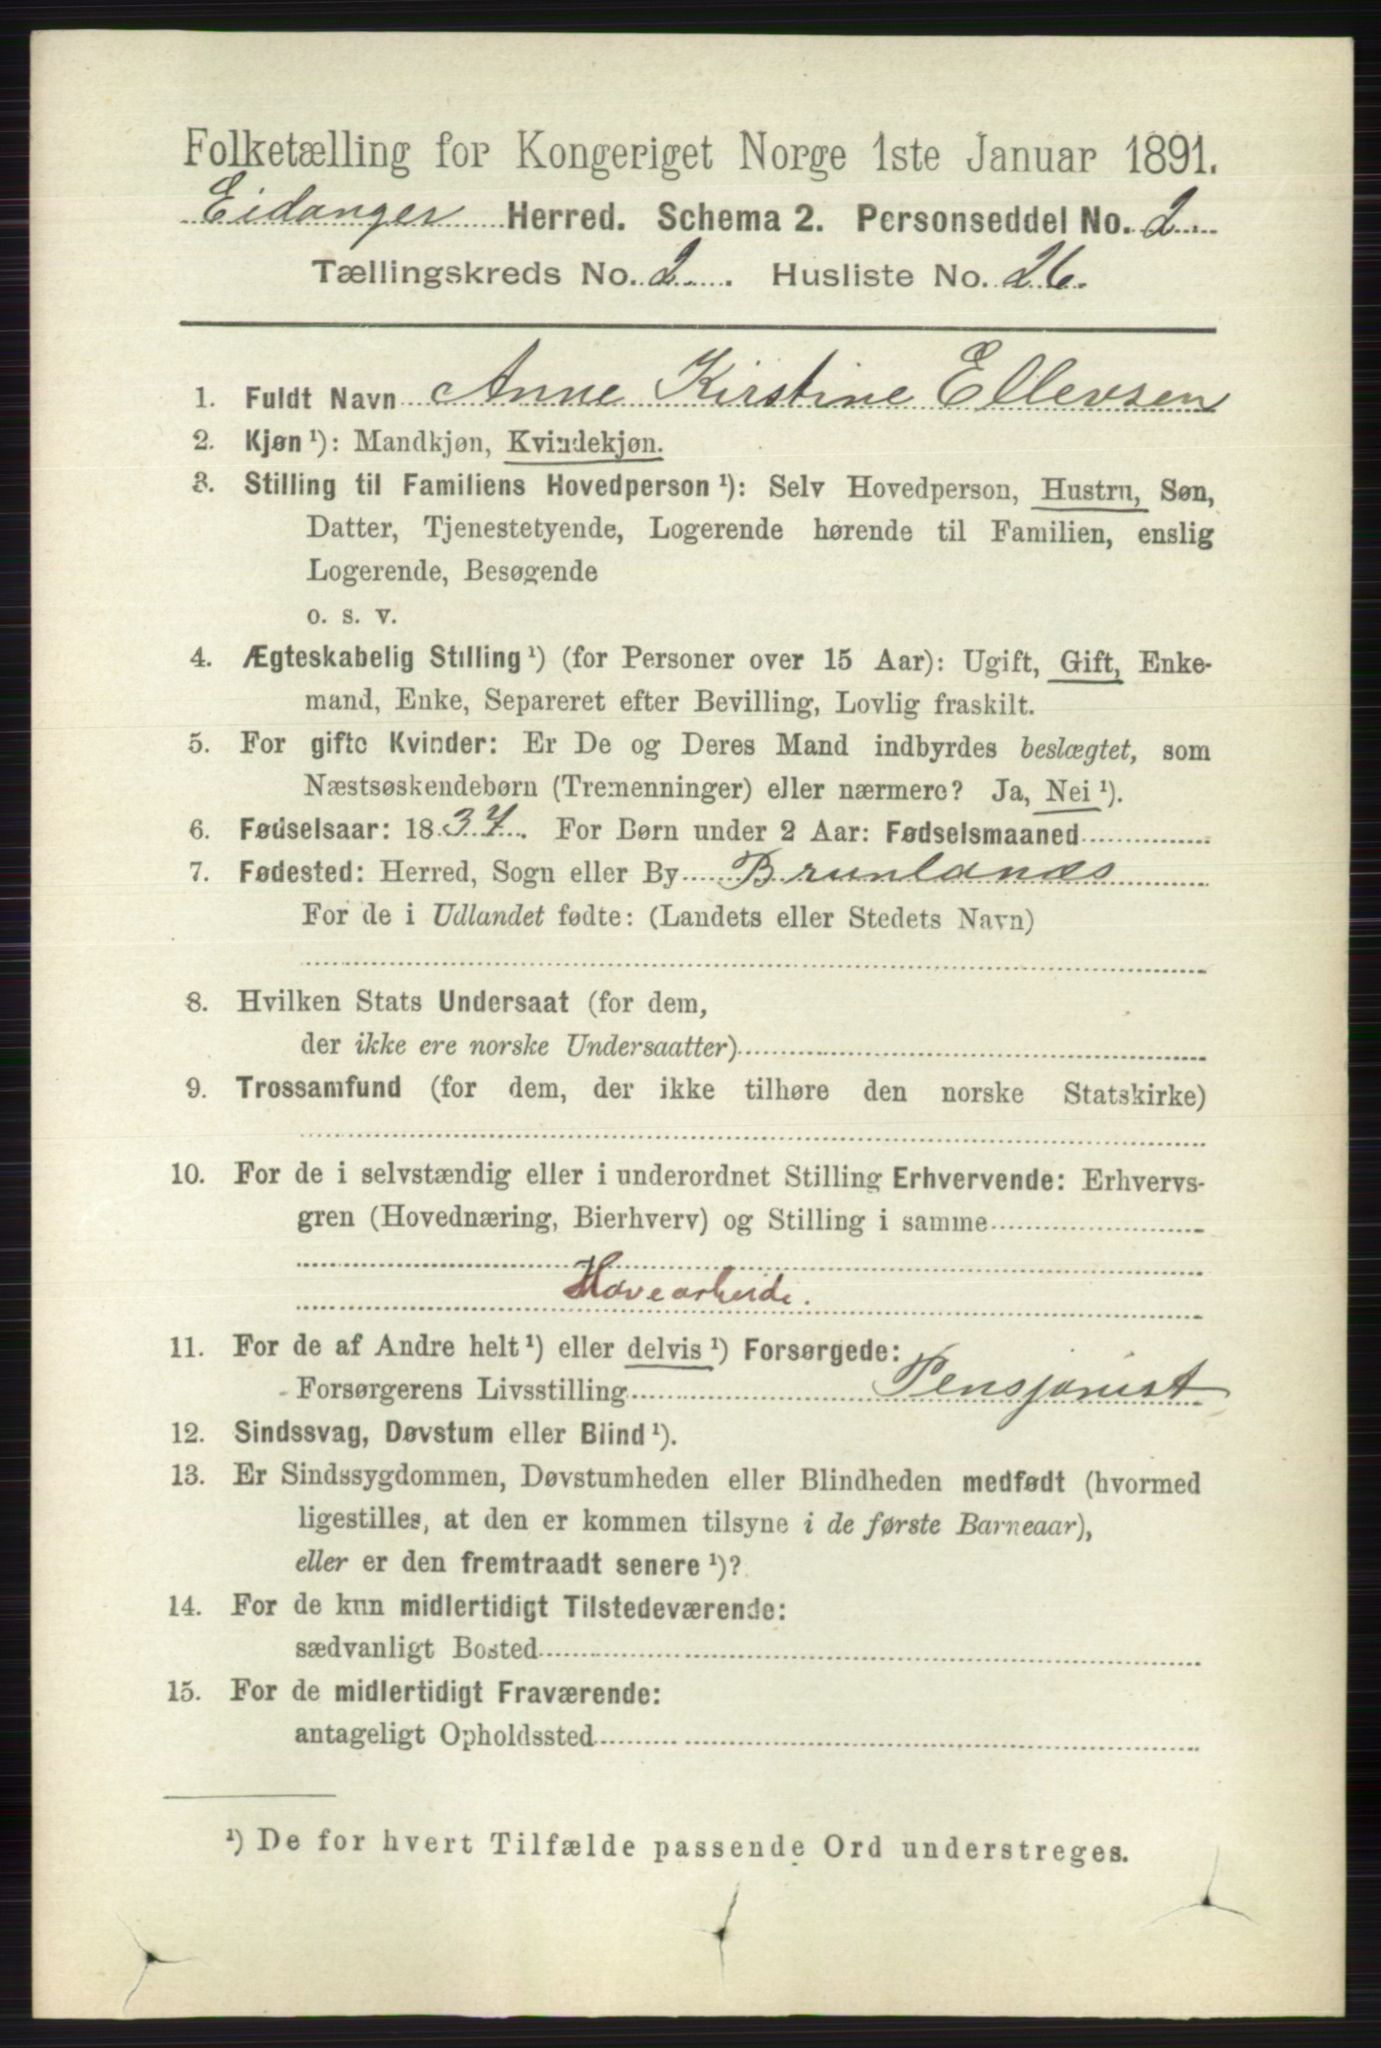 Folketælling for Kongeriget Norge 1ste Januar 1891.
Eidanger Herred. Schema 2. Personseddel No. 2
Tællingskreds No. 2. Husliste No. 26.
1. Fuldt Navn Anne Kirstine Ellevsen
2. Kjøn¹): Mandkjøn, Kvindekjøn.
3. Stilling til Familiens Hovedperson¹): Selv Hovedperson, Hustru, Søn,
Datter, Tjenestetyende, Logerende hørende til Familien, enslig
Logerende, Besøgende
o. s. v.
4. Ægteskabelig Stilling¹) (for Personer over 15 Aar): Ugift, Gift, Enke-
mand, Enke, Separeret efter Bevilling, Lovlig fraskilt.
5. For gifte Kvinder: Er De og Deres Mand indbyrdes beslægtet, som
Næstsøskendebørn (Tremenninger) eller nærmere? Ja, Nei¹).
6. Fødselsaar: 1837. For Børn under 2 Aar: Fødselsmaaned
7. Fødested: Herred, Sogn eller By Brunlanæs
For de i Udlandet fødte: (Landets eller Stedets Navn)
8. Hvilken Stats Undersaat (for dem,
der ikke ere norske Undersaatter)
9. Trossamfund (for dem, der ikke tilhøre den norske Statskirke)
10. For de i selvstændig eller i underordnet Stilling Erhvervende: Erhvervs-
gren (Hovednæring, Bierhverv) og Stilling i samme
Havearbeide.
11. For de af Andre helt¹) eller delvis¹) Forsørgede:
Forsørgerens Livsstilling Pensjonist
12. Sindssvag, Døvstum eller Blind¹).
13. Er Sindssygdommen, Døvstumheden eller Blindheden medfødt (hvormed
ligestilles, at den er kommen tilsyne i de første Barneaar),
eller er den fremtraadt senere¹)?
14. For de kun midlertidigt Tilstedeværende:
sædvanligt Bosted
15. For de midlertidigt Fraværende:
antageligt Opholdssted
¹) De for hvert Tilfælde passende Ord understreges.